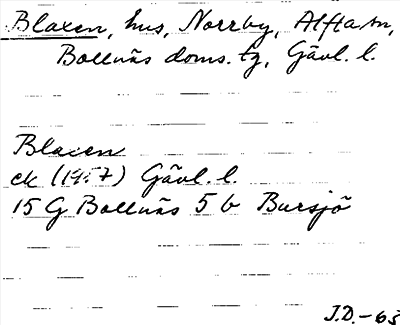 Blaxen, hus, Norrby, Alfta sn,
Bollnäs doms. tg, Gävl. l.
Blaxen
ek (1957) Gävl. l.
15 G Bollnäs 5 b Bursjö
J.D. -63